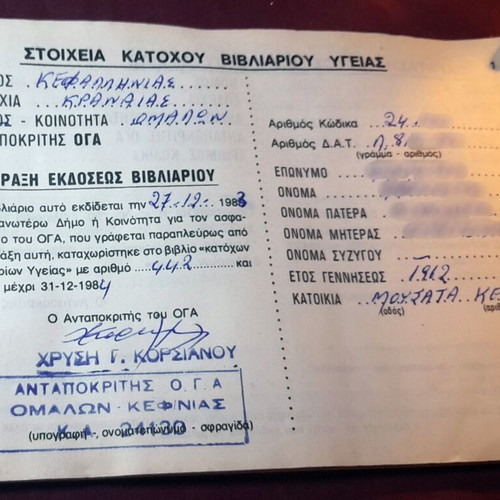 ΣΤΟΙΧΕΙΑ ΚΑΤΟΧΟΥ ΒΙΒΛΙΑΡΙΟΥ ΥΓΕΙΑΣ
ΟΣ ΚΕΦΑΛΛΗΝΙΑΣ
ΧΙΑ ΚΡΑΝΑΙΑΣ
ΟΣ - ΚΟΙΝΟΤΗΤΑ ΟΜΑΛΩΝ
ΑΠΟΚΡΙΤΗΣ ΟΓΑ
ΡΑΞΗ ΕΚΔΟΣΕΩΣ ΒΙΒΛΙΑΡΙΟΥ
βλιάριο αυτό εκδίδεται την 27-12-1983
ανωτέρω Δήμο ή Κοινότητα για τον ασφα-
ο του ΟΓΑ, που γράφεται παραπλεύρως από
άξη αυτή, καταχωρίστηκε στο βιβλίο «κατόχων
ρίων Υγείας» με αριθμό 442 και
μέχρι 31-12-1984
Ο Ανταποκριτής του ΟΓΑ
ΧΡΥΣΗ Γ. ΚΟΡΣΙΑΝΟΥ
ΑΝΤΑΠΟΚΡΙΤΗΣ Ο.Γ.Α
ΟΜΑΛΩΝ - ΚΕΦ/ΝΙΑΣ
Κ.Α. 24130
(υπογραφή -, ονοματεπώνυμο - σφραγίδα)
Αριθμός Κώδικα 24
Αριθμός Δ.Α.Τ. Λ.8
(γράμμα - αριθμός)
ΕΠΩΝΥΜΟ
ΟΝΟΜΑ
ΟΝΟΜΑ ΠΑΤΕΡΑ
ΟΝΟΜΑ ΜΗΤΕΡΑΣ
ΟΝΟΜΑ ΣΥΖΥΓΟΥ —
ΕΤΟΣ ΓΕΝΝΗΣΕΩΣ 1912
ΚΑΤΟΙΚΙΑ ΜΟΥΣΑΤΑ ΚΕ
(οδός) (αρι